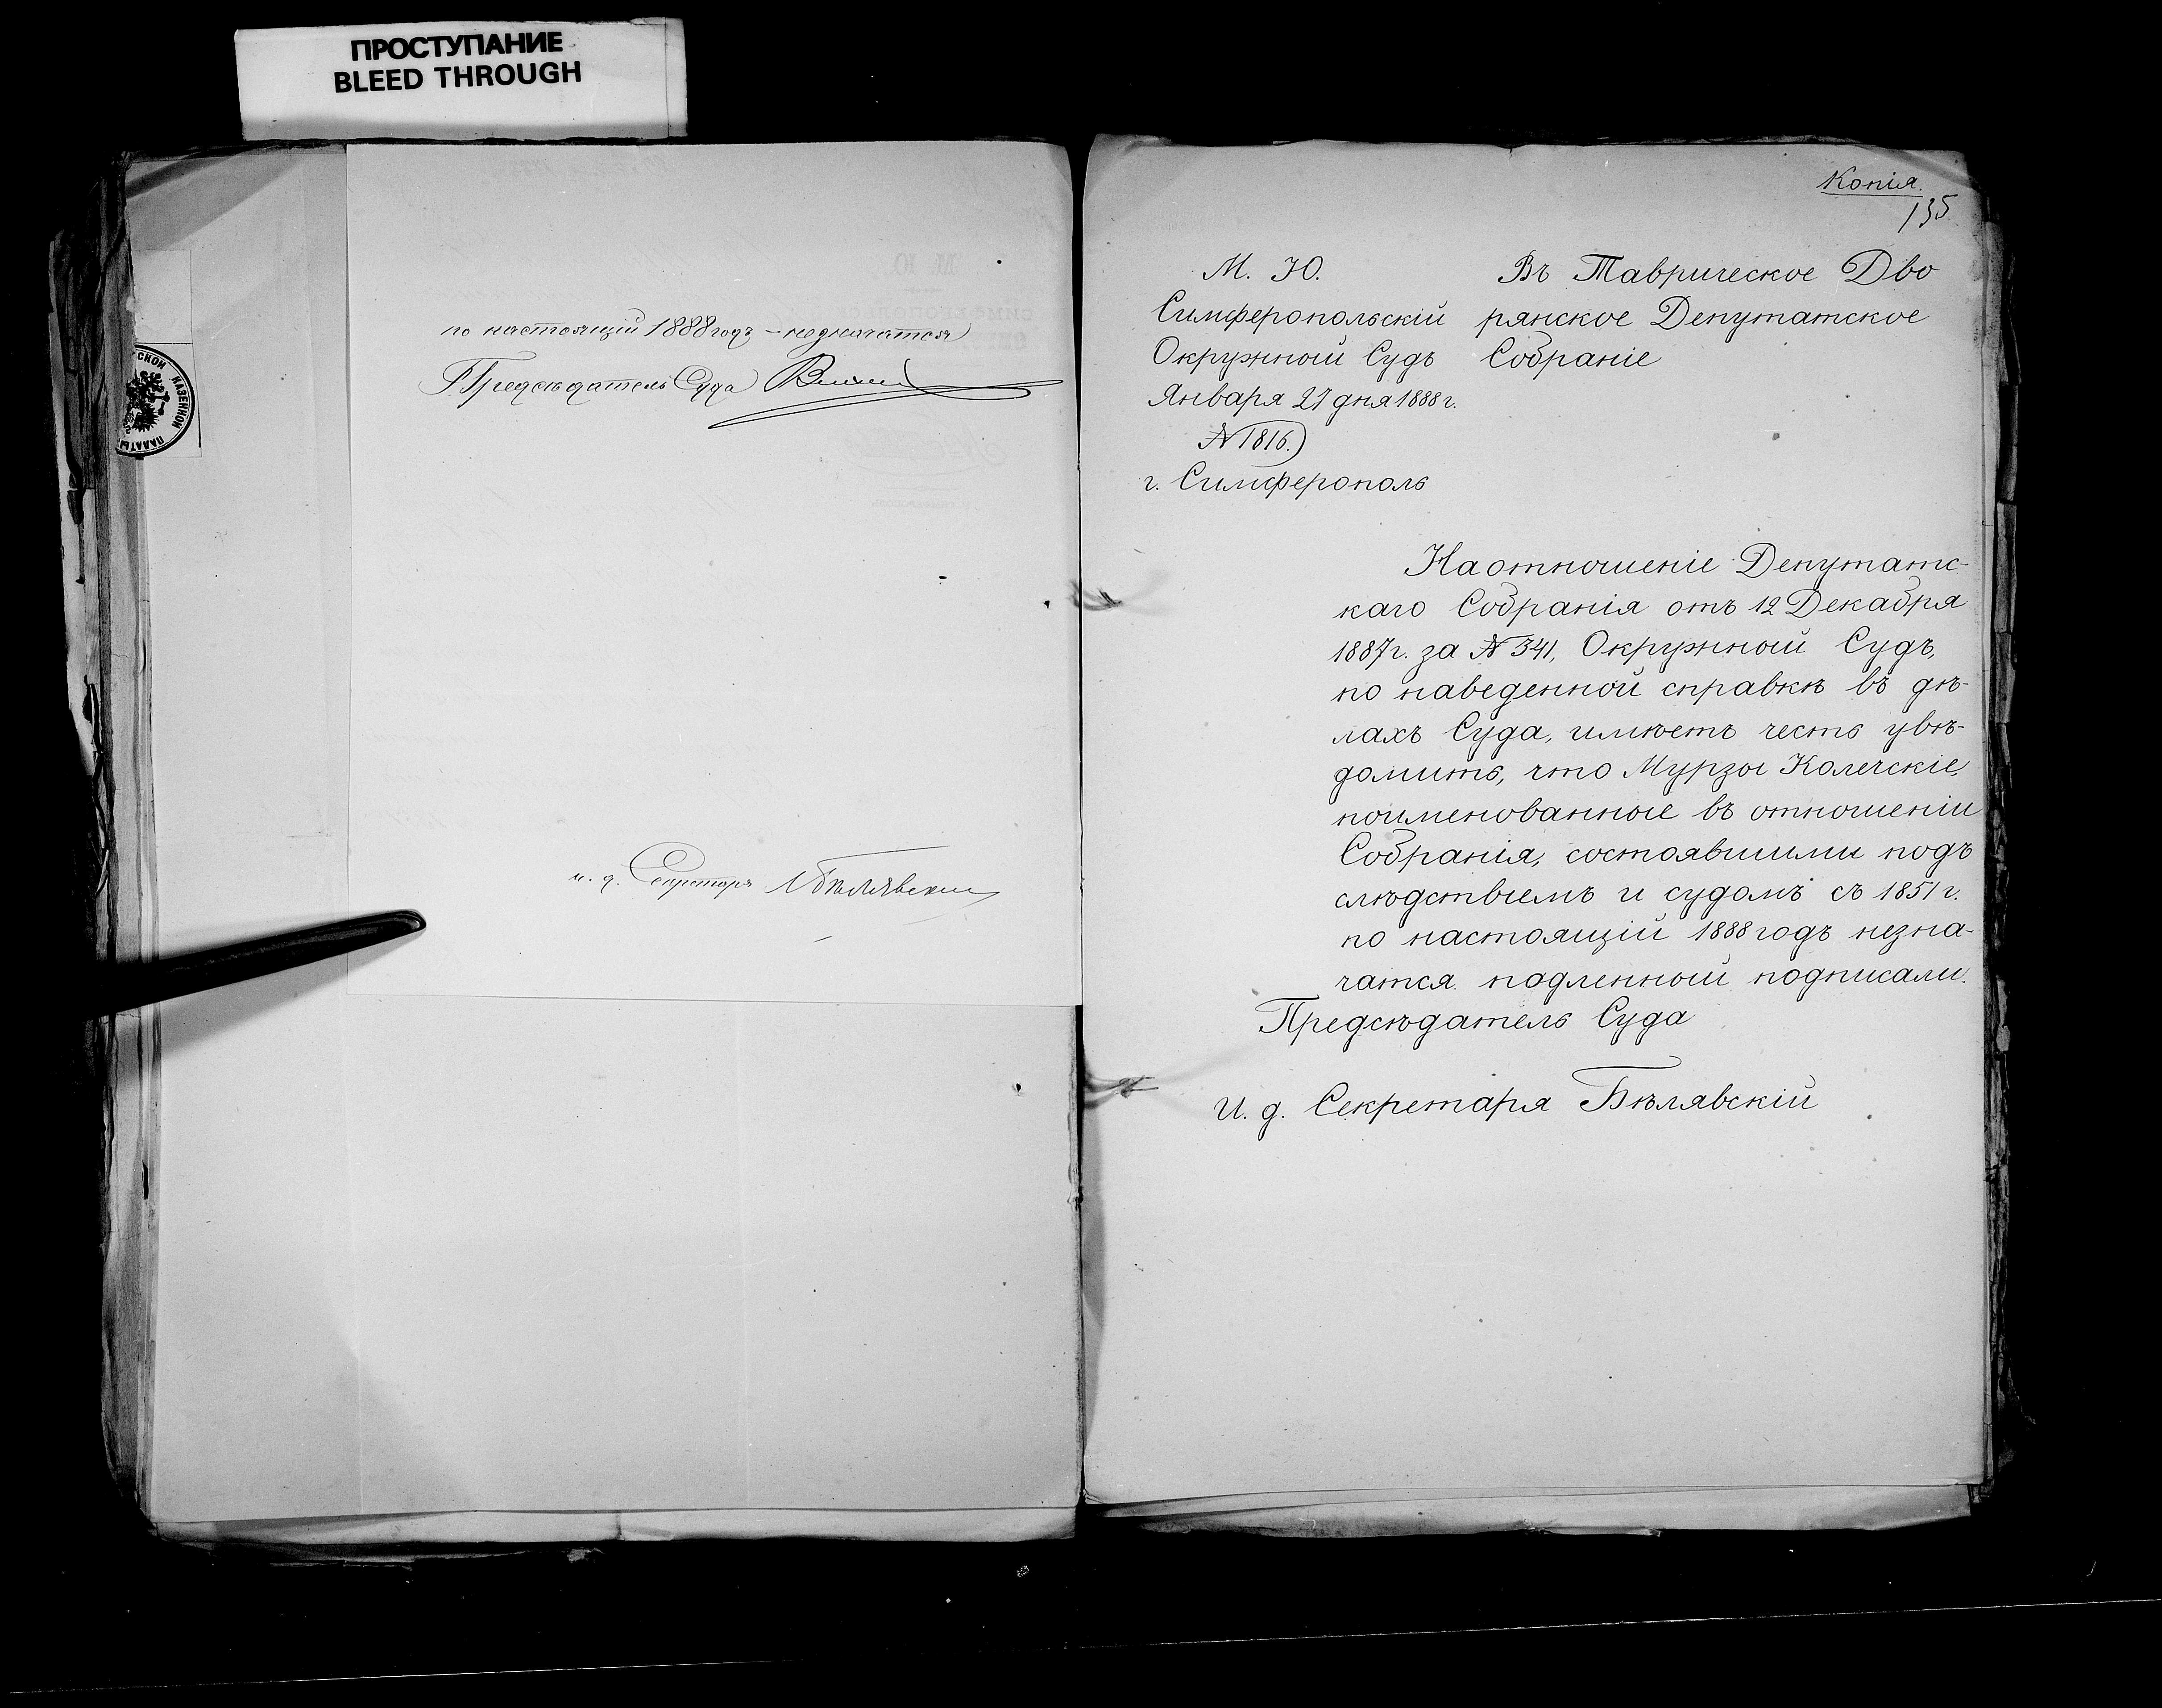 ПРОСТУПАНИЕ
BLEED THROUGH
по настоящій 1888 годъ – незначатся
Предсѣдатель Суда
и. д. Секретаря Бѣлявскій
СКОЙ КАЗЕННОЙ ПАЛАТЫ
Копія.
135
М. Ю.
Симферопольскій
Окружный Судъ
Января 27 дня 1888 г.
№ 1816.
г. Симферополь
Въ Таврическое Дво
рянское Депутатское
Собраніе
На отношеніе Депутатс-
каго Собранія отъ 12 Декабря
1887 г. за № 341, Окружный Судъ,
по наведенной справкѣ въ дѣ-
лахъ Суда, имѣетъ честь увѣ-
домить, что Мурзы Колечскіе,
поименованные въ отношеніи
Собранія, состоявшими подъ
слѣдствіемъ и судомъ съ 1851 г.
по настоящій 1888 годъ незна-
чатся. подленный подписали.
Предсѣдатель Суда
И. д. Секретаря Бѣлявскій